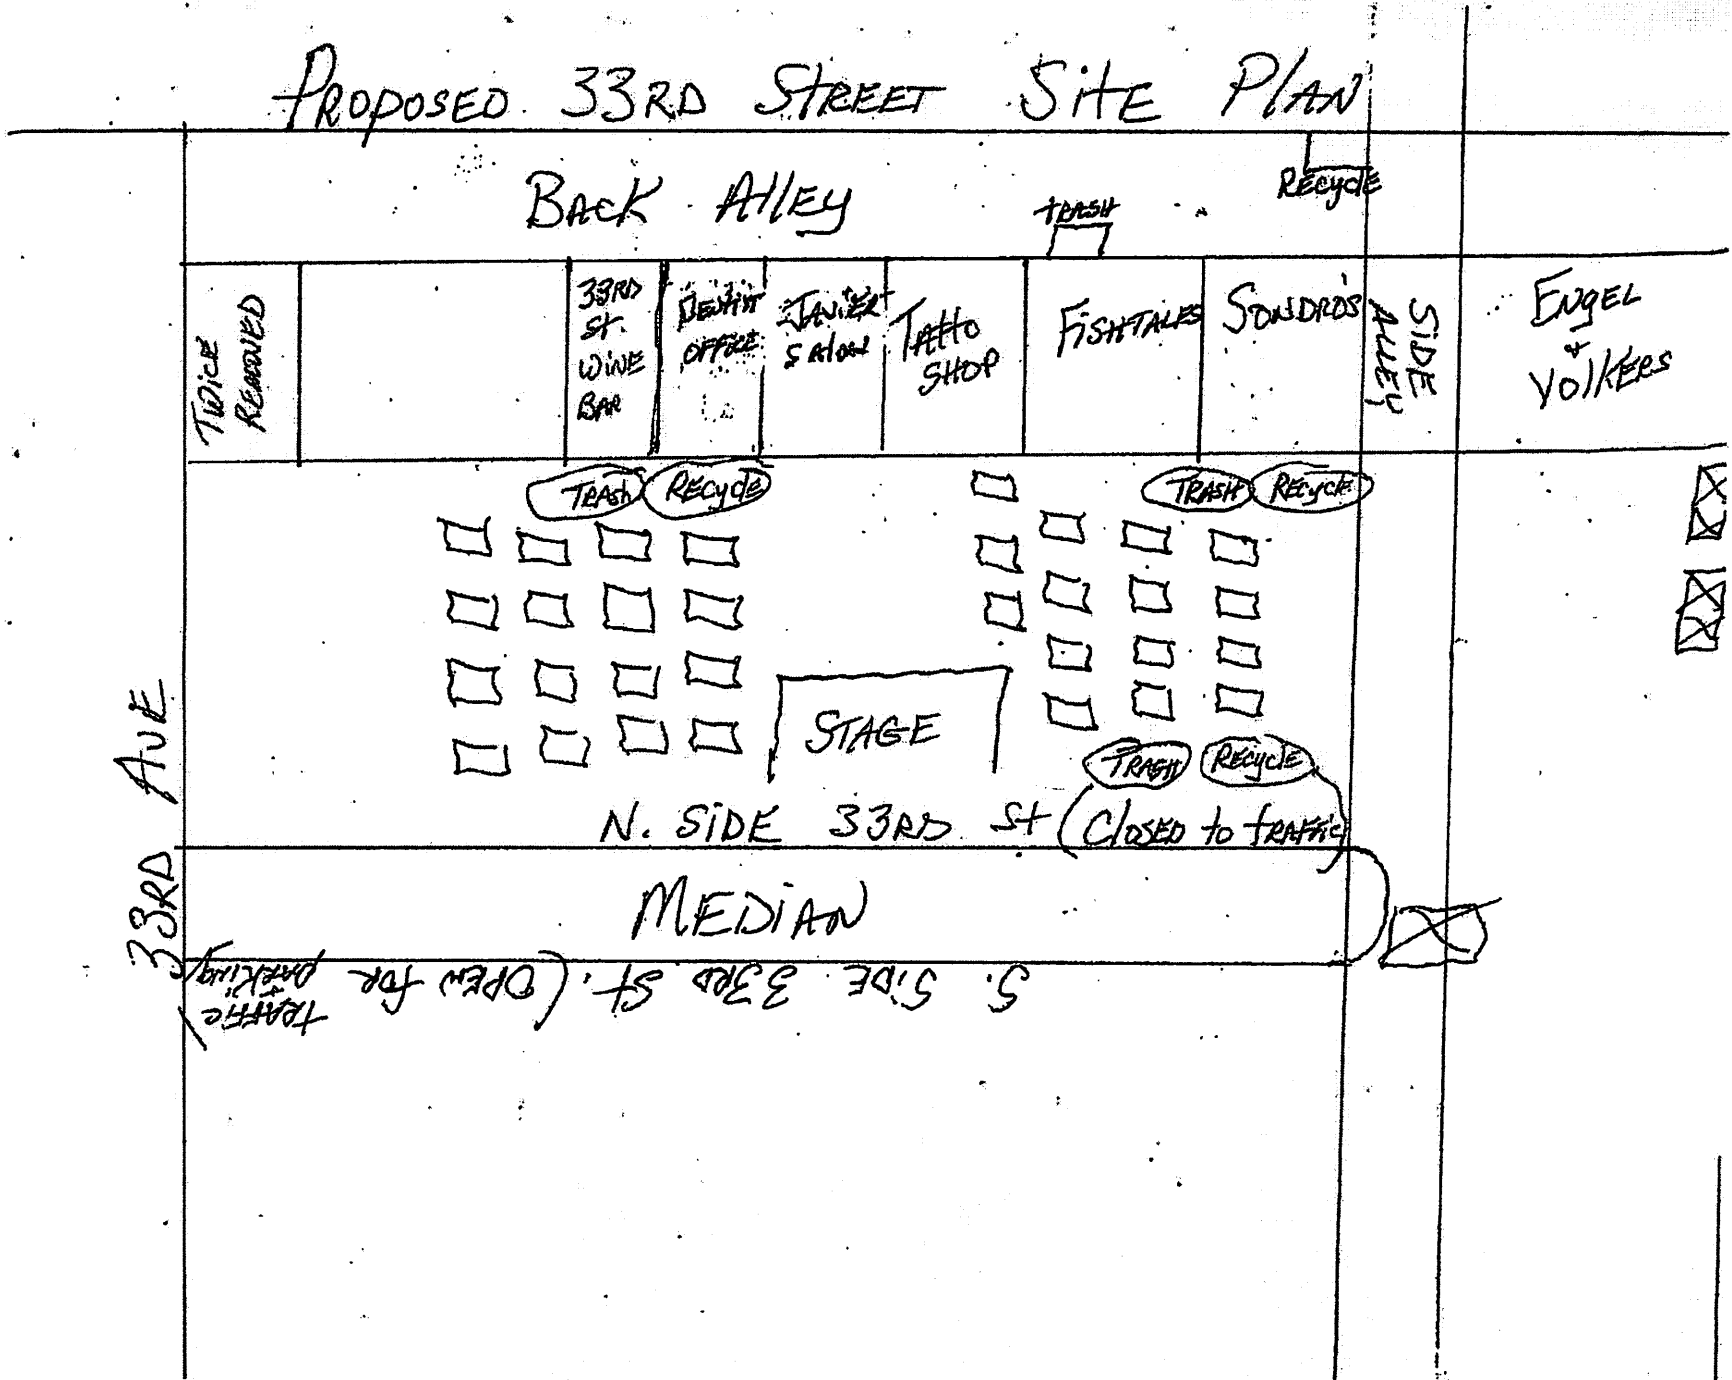 PROPOSED 33RD STREET SITE PLAN
BACK AllEY
RECycle
TRASH
TWICE
REASONED
33RD
St.
WINE
BAR
DENTIST
OFFICE
JAVIER
SALON
TATTO
SHOP
FISHTALES
SONDRO'S
SIDE
ALLEY
ENGEL
+
VOLKERS
TRASH RECycle
TRASH RECycle
STAGE
TRASH RECycle
N. SIDE 33RD St (CLOSED to tRAFFic)
33RD AVE
MEDIAN
S. SIDE 33RD St. (OPEN FOR
PARKING
+
TRAFFIC)